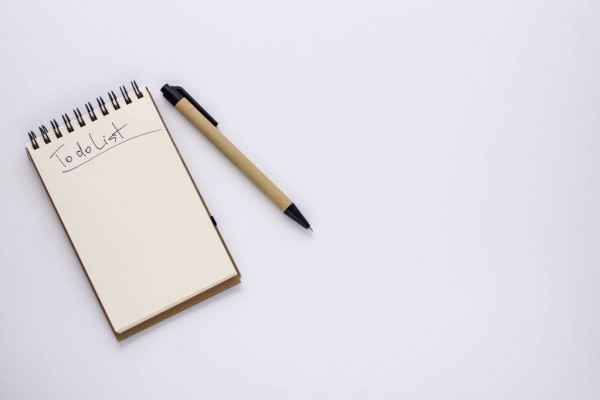 To do List